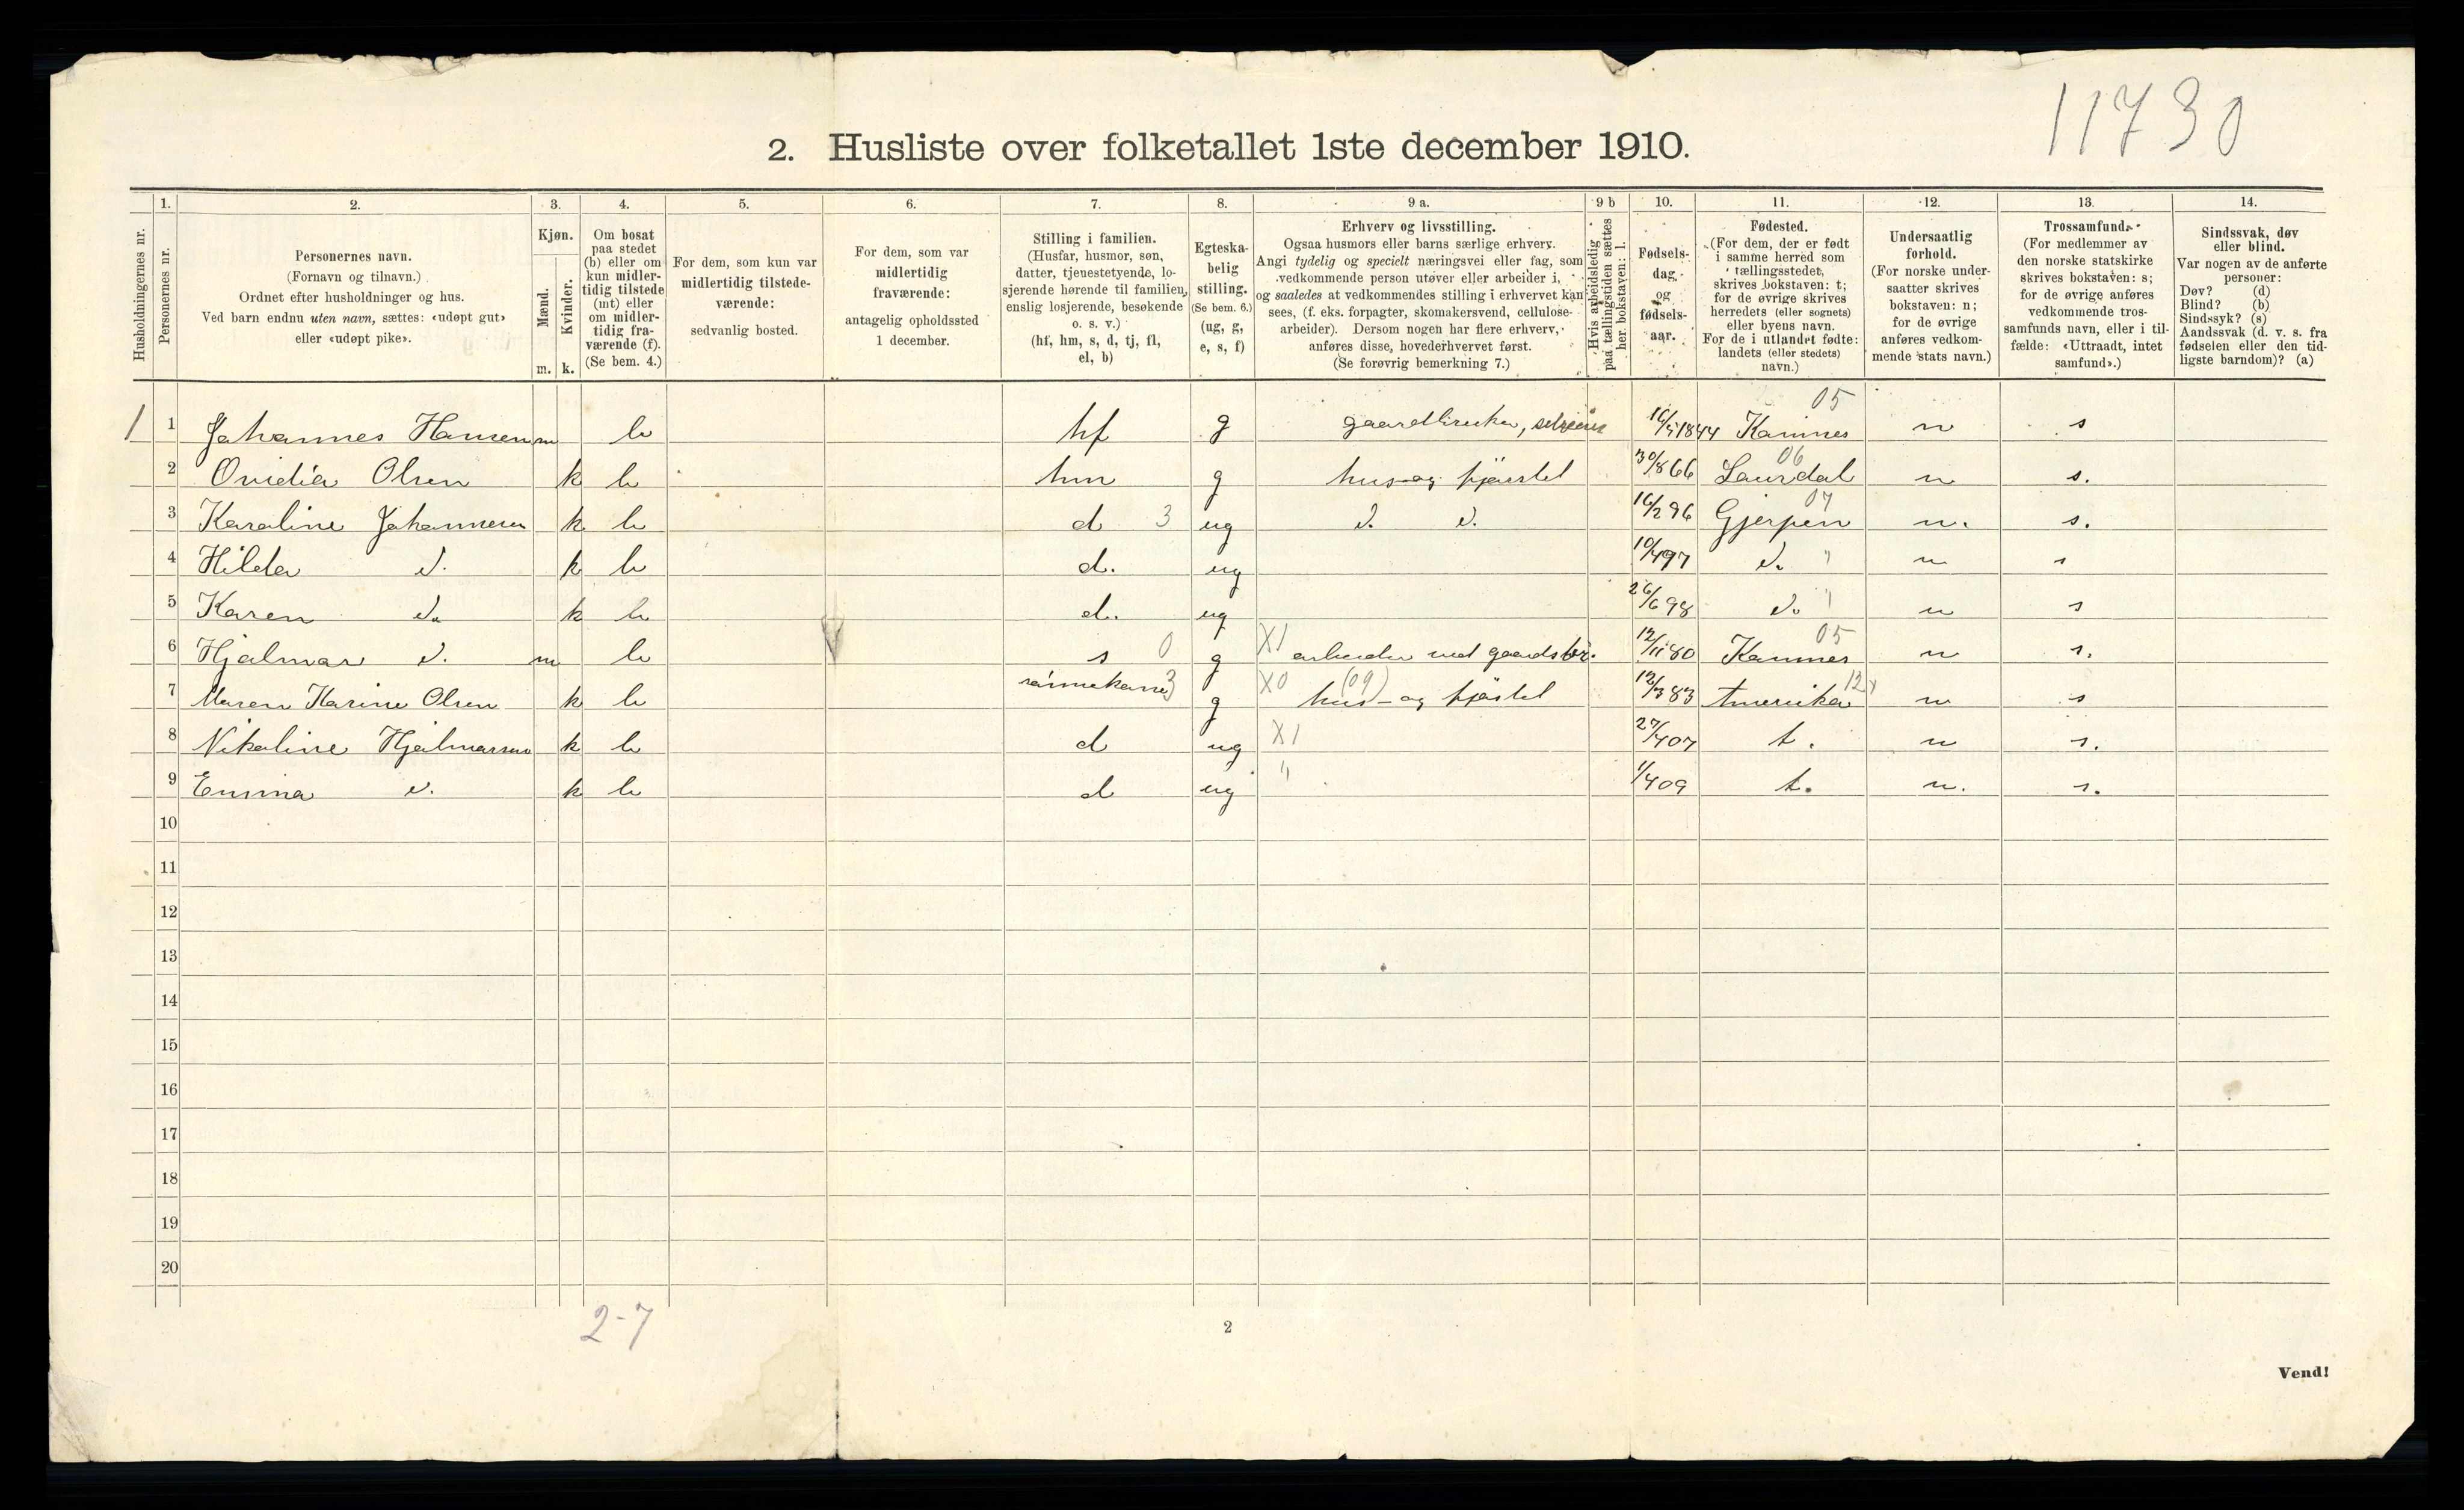 11730
2. Husliste over folketallet 1ste december 1910.
Husholdningernes nr.
1.
Personernes nr.
2.
Personernes navn.
(Fornavn og tilnavn.)
Ordnet efter husholdninger og hus.
Ved barn endnu uten navn, sættes: «udøpt gut»
eller «udøpt pike».
3.
Kjøn.
Mænd.
Kvinder.
m. k.
4.
Om bosat
paa stedet
(b) eller om
kun midler-
tidig tilstede
(mt) eller
om midler-
tidig fra-
værende (f).
(Se bem. 4.)
5.
For dem, som kun var
midlertidig tilstede-
værende:
sedvanlig bosted.
6.
For dem, som var
midlertidig
fraværende:
antagelig opholdssted
1 december.
7.
Stilling i familien.
(Husfar, husmor, søn,
datter, tjenestetyende, lo-
sjerende hørende til familien,
enslig losjerende, besøkende
o. s. v.)
(hf, hm, s, d, tj, fl,
el, b)
8.
Egteska-
belig
stilling.
(Se bem. 6.)
(ug, g,
e, s, f)
9 a.
Erhverv og livsstilling.
Ogsaa husmors eller barns særlige erhverv.
Angi tydelig og specielt næringsvei eller fag, som
vedkommende person utøver eller arbeider i,
og saaledes at vedkommendes stilling i erhvervet kan
sees, (f. eks. forpagter, skomakersvend, cellulose-
arbeider). Dersom nogen har flere erhverv,
anføres disse, hovederhvervet først.
(Se forøvrig bemerkning 7.)
9 b
Hvis arbeidsledig
paa tællingstiden sættes
her bokstaven: l.
10.
Fødsels-
dag
og
fødsels-
aar.
11.
Fødested.
(For dem, der er født
i samme herred som
tællingsstedet,
skrives bokstaven: t;
for de øvrige skrives
herredets (eller sognets)
eller byens navn.
For de i utlandet fødte:
landets (eller stedets)
navn.)
12.
Undersaatlig
forhold.
(For norske under-
saatter skrives
bokstaven: n;
for de øvrige
anføres vedkom-
mende stats navn.)
13.
Trossamfund.
(For medlemmer av
den norske statskirke
skrives bokstaven: s;
for de øvrige anføres
vedkommende tros-
samfunds navn, eller i til-
fælde: «Uttraadt, intet
samfund».)
14.
Sindssvak, døv
eller blind.
Var nogen av de anførte
personer:
Døv? (d)
Blind? (b)
Sindssyk? (s)
Aandssvak (d. v. s. fra
fødselen eller den tid-
ligste barndom)? (a)
1 1 Johannes Hansen m b hf g gaardbruker, selveier 16/5 1844 Kamnes 05 n s
2 Ovidia Olsen k b hm g hus- og fjøsstel 30/8 66 Laurdal 06 n s.
3 Karoline Johannesen k b d 3 ug d. d. 16/2 96 Gjerpen 07 n. s.
4 Hilda d. k b d. ug 10/4 97 d. " n s
5 Karen d. k b d. ug 26/6 98 d. " n s
6 Hjalmar d. m b s 0 g X1 arbeider ved gaardsbr. 12/11 80 Kamnes 05 n s.
7 Maren Karine Olsen k b sønnekone 3 g X0 (09) hus- og fjøsstel 12/3 83 Amerika 12 n s
8 Nikoline Hjalmarsen k b d ug X1 27/4 07 t. n s.
9 Emma d. k b d ug " 1/4 09 t. n. s.
10
11
12
13
14
15
16
17
18
19
20
2-7
2
Vend!